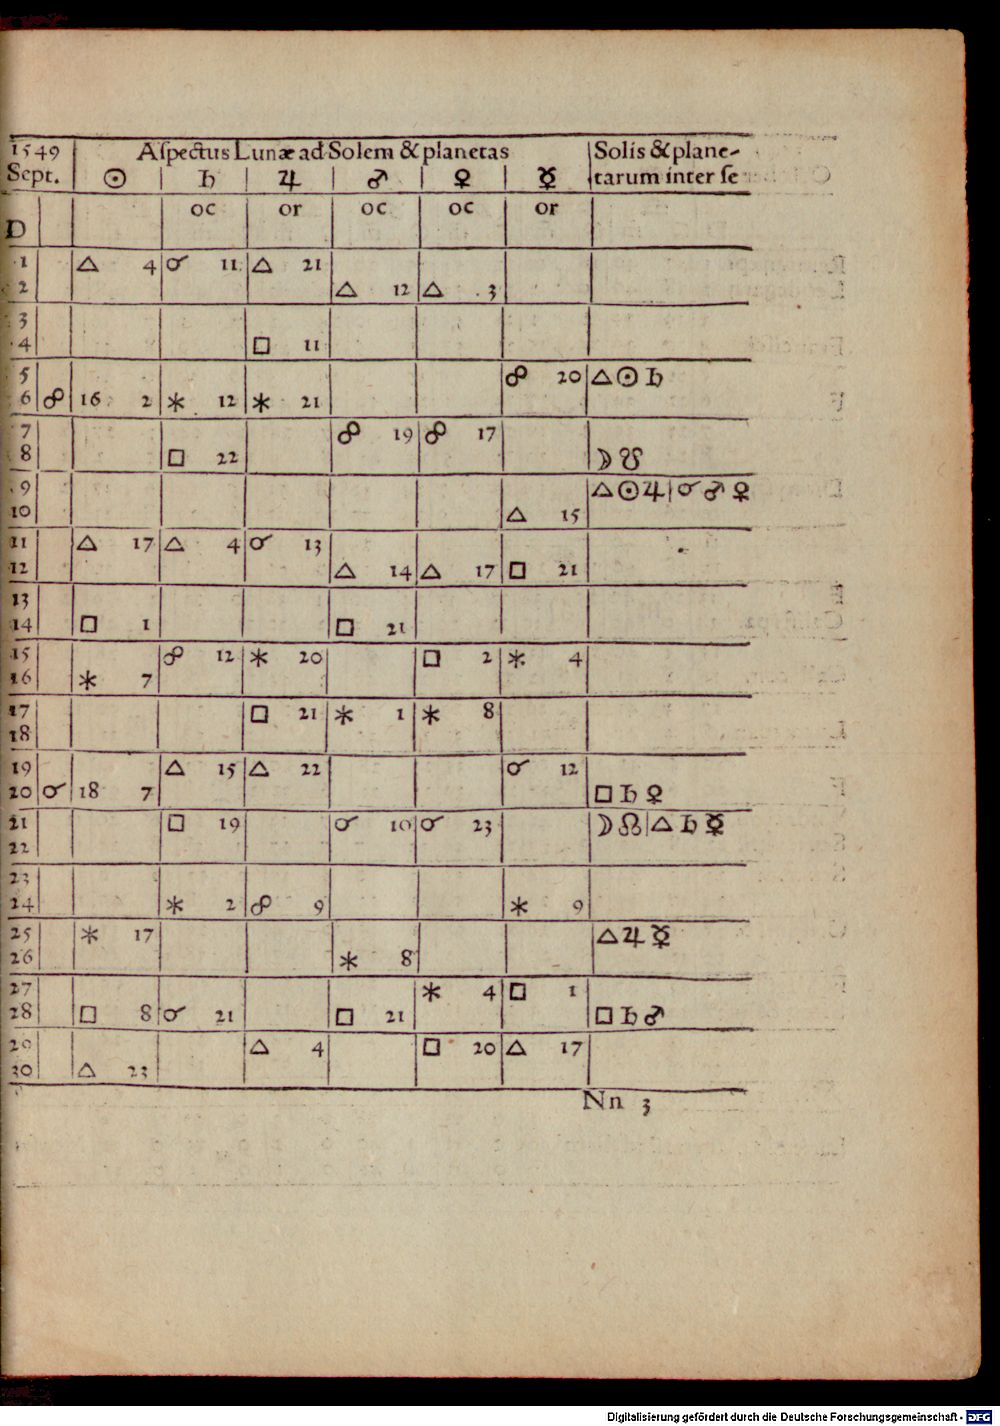 1549 Aſpectus Lunæ ad Solem & planetas Solis & plane-
Sept. ☉ ♄ ♃ ♂ ♀ ☿ tarum inter ſe
D oc or oc oc or
1 △ 4 ☌ 11 △ 21
2 △ 12 △ 3
3
4 □ 11
5 ☍ 20 △ ☉ ♄
6 ☍ 16 2 ⚹ 12 ⚹ 21
7 ☍ 19 ☍ 17
8 □ 22 ☽ ☋
9 △ ☉ ♃ | ☌ ♂ ♀
10 △ 15
11 △ 17 △ 4 ☌ 13
12 △ 14 △ 17 □ 21
13
14 □ 1 □ 21
15 ☍ 12 ⚹ 20 □ 2 ⚹ 4
16 ⚹ 7
17 □ 21 ⚹ 1 ⚹ 8
18
19 △ 15 △ 22 ☌ 12
20 ☌ 18 7 □ ♄ ♀
21 □ 19 ☌ 10 ☌ 23 ☽ ☊ | △ ♄ ☿
22
23
24 ⚹ 2 ☍ 9 ⚹ 9
25 ⚹ 17 △ ♃ ☿
26 ⚹ 8
27 ⚹ 4 □ 1
28 □ 8 ☌ 21 □ 21 □ ♄ ♂
29 △ 4 □ 20 △ 17
30 △ 23
Nn 3
Digitalisierung gefördert durch die Deutsche Forschungsgemeinschaft - DFG